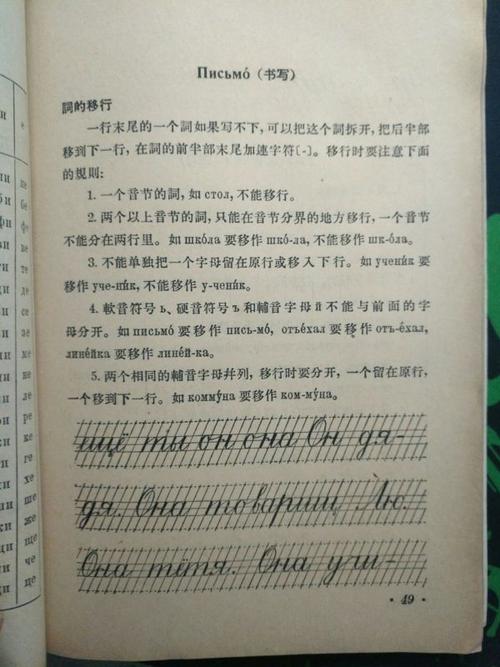 Письмо́ (书写)
詞的移行
一行末尾的一个詞如果写不下，可以把这个詞拆开，把后半部
移到下一行，在詞的前半部末尾加連字符〔-〕。移行时要注意下面
的規則：
1. 一个音节的詞，如 стол，不能移行。
2. 两个以上音节的詞，只能在音节分界的地方移行，一个音节
不能分在两行里。如 шко́ла 要移作 шко́-ла，不能移作 шк-о́ла。
3. 不能单独把一个字母留在原行或移入下行。如 учени́к 要
移作 уче-ни́к，不能移作 у-чени́к。
4. 軟音符号 ь、硬音符号 ъ 和輔音字母 й 不能与前面的字
母分开。如 письмо́ 要移作 пись-мо́，отъе́хал 要移作 отъ-е́хал，
лине́йка 要移作 лине́й-ка。
5. 两个相同的輔音字母幷列，移行时要分开，一个留在原行，
一个移到下一行。如 комму́на 要移作 ком-му́на。
ещё ты он она Он дя-
дя. Она товарищ Лю.
Она тётя. Она учи-
• 49 •
ни
би
фи
ви
ти
ди
си
зи
ли
ри
ки
ги
хи
ши
жи
щи
чи
ци
е
не
бе
фе
ве
те
де
се
зе
ме
не
ле
ре
ке
ге
хе
ше
же
ще
че
це